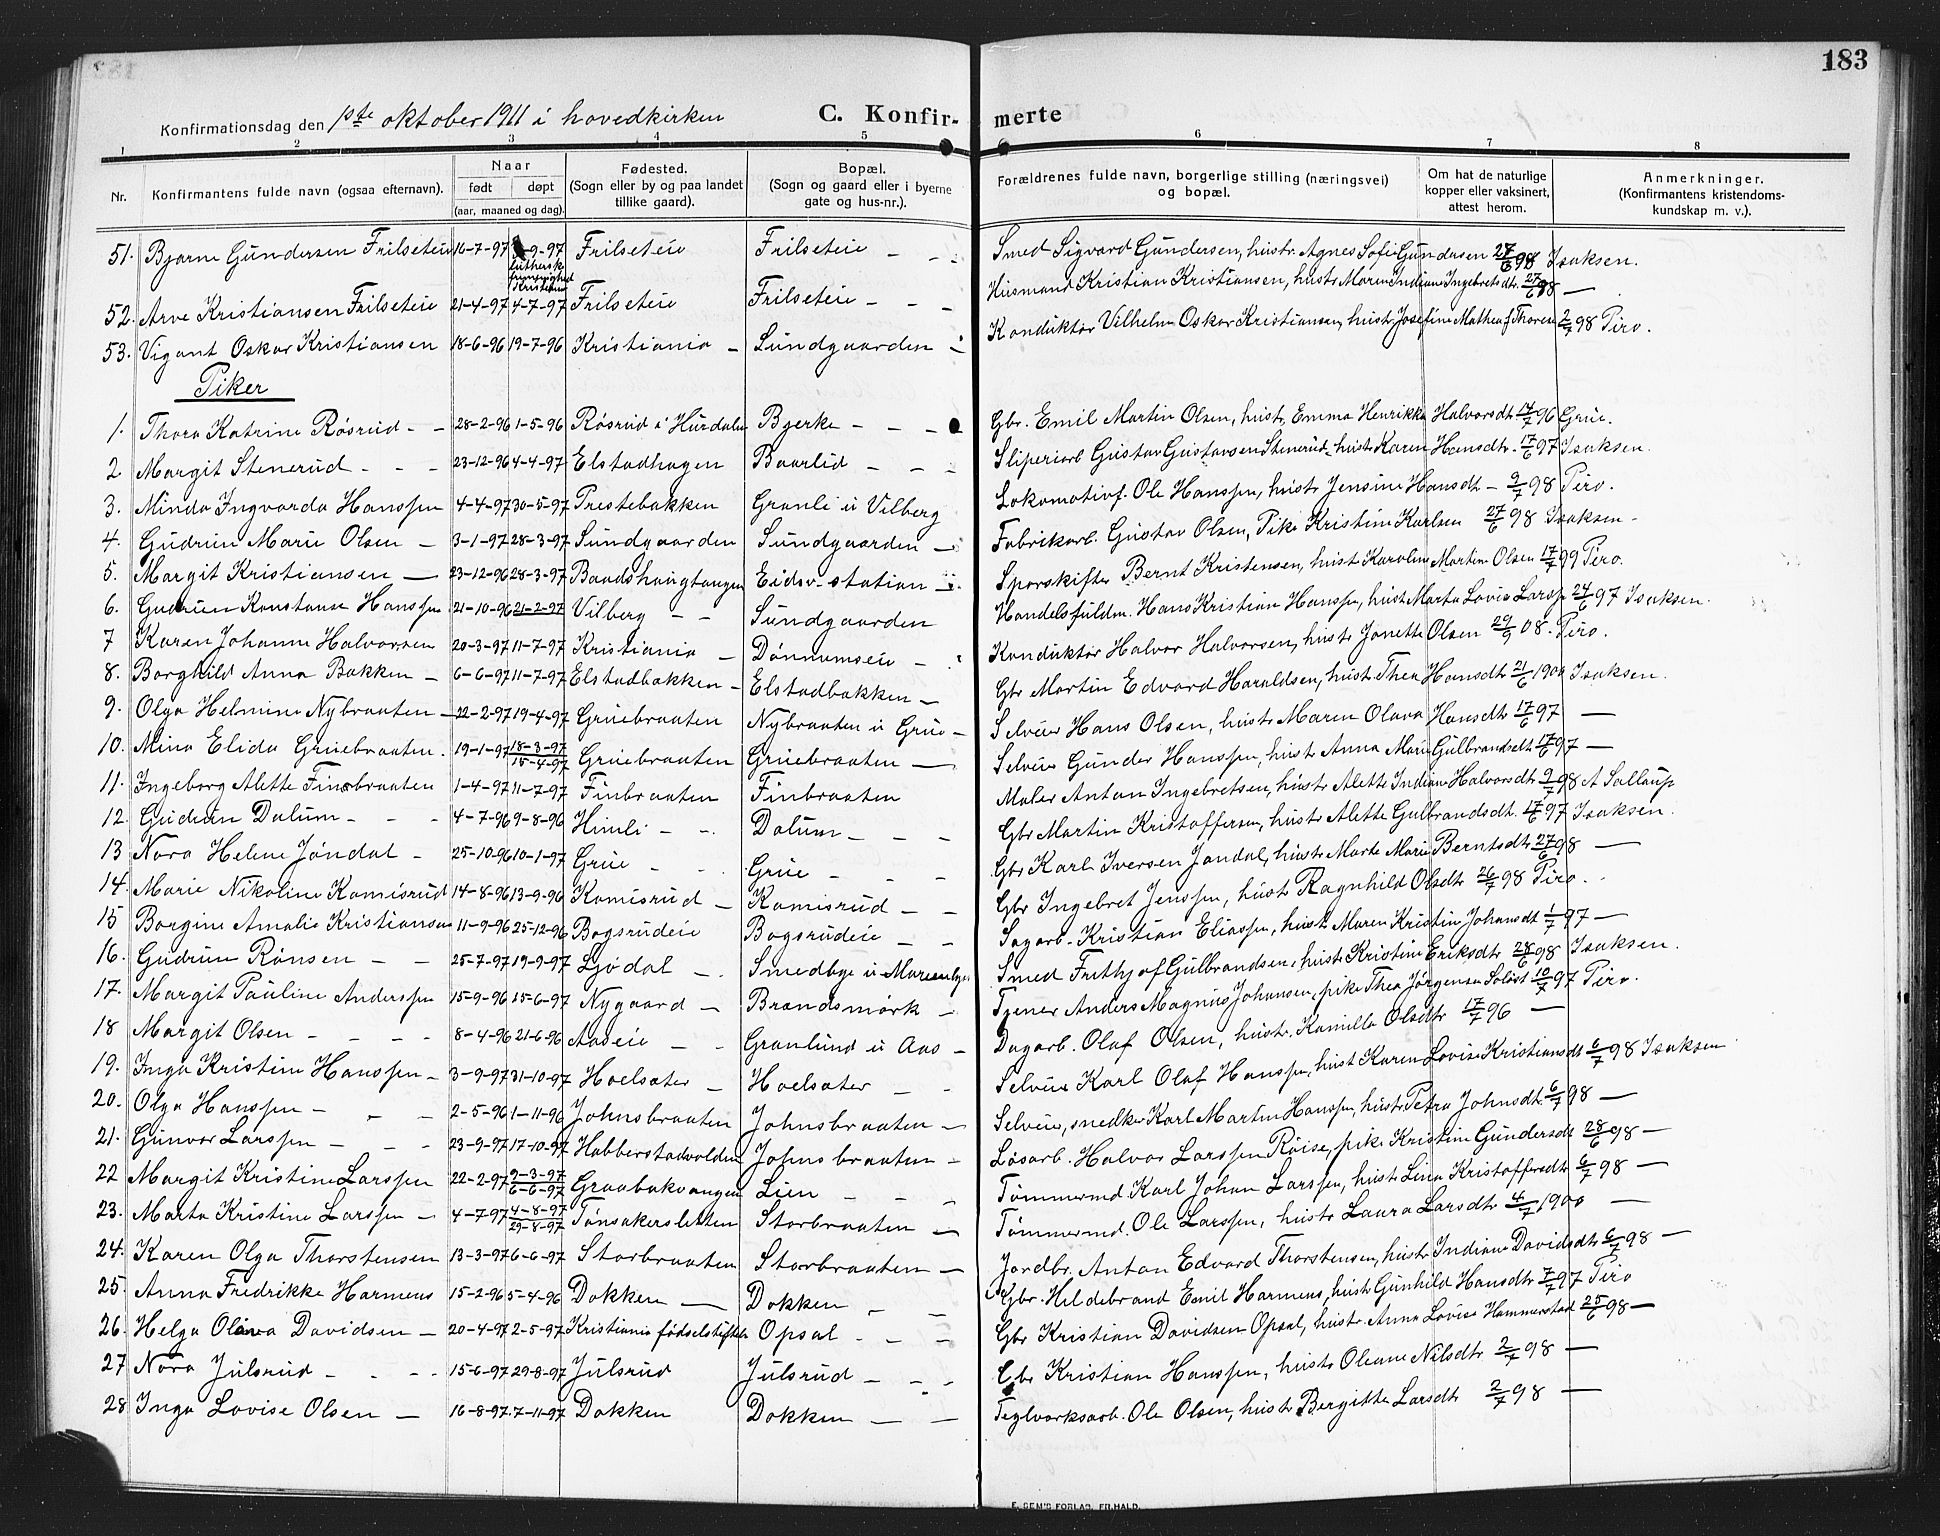 183
Konfirmationsdag den 1ste oktober 1911 i hovedkirken C. Konfir- merte
1 2 3 4 5 6 7 8
Nr. Konfirmantens fulde navn (ogsaa efternavn). Naar født døpt (aar, maaned og dag). Fødested. (Sogn eller by og paa landet tillike gaard). Bopæl. (Sogn og gaard eller i byerne gate og hus-nr.). Forældrenes fulde navn, borgerlige stilling (næringsvei) og bopæl. Om hat de naturlige kopper eller vaksinert, attest herom. Anmerkninger. (Konfirmantens kristendoms- kundskap m. v.).
51. Bjarne Gundersen Frilseteie 16-7-97 9-97 Frilseteie Frilseteie - - Smed Sigvard Gundersen, hustr. Agnes Sofie Gundersen 27/6 98 Isaksen.
52. Arve Kristiansen Frilseteie 21-4-97 4-7-97 Frilseteie Frilseteie - - Husmand Kristian Kristiansen, hustr. Maren Indiane Ingebretsdtr. 27/6 98 —
53. Vigant Oskar Kristiansen 18-6-96 19-7-96 Kristiania - Sundgaarden - Konduktør Vilhelm Oskar Kristiansen, hustr Josefine Mathea f. Thoren 2/7 98 Piro.
Piker
1. Thora Katrine Røsrud - - 28-2-96 1-5-96 Røsrud i Hurdalen Bjerke - - - Gbr. Emil Martin Olsen, hustr, Emma Henrikke Halvorsdtr 14/7 96 Grue.
2 Margit Stenerud - - - 23-12-96 4-4-97 Elstadhagen Baarlid - - - Sliperiarb Gustav Gustavsen Stenerud, hustr Karen Hansdtr. 17/6 97 Isaksen.
3. Minda Ingvarda Hanssen 4-4-97 30-5-97 Prestebakken Granli u Vilberg Lokomotivf. Ole Hanssen, hustr Jensine Hansdtr - 9/7 98 Piro.
4. Gudrun Marie Olsen - 3-1-97 28-3-97 Sundgaarden Sundgaarden - Fabrikarb. Gustav Olsen, Pike Kristine Karlsen 27/6 98 Isaksen -
5. Margit Kristiansen — 23-12-96 28-3-97 Baadshaugtangen Eidsv. station - Sporskifter Bernt Kristensen, hustr Karoline Martine Olsen 17/7 99 Piro.
6. Gudrun Konstanse Hanssen 21-10-96 21-2-97 Vilberg - - Sundgaarden Handelsfuldm. Hans Kristian Hanssen, hustr Marta Lovise Larssen 24/6 97 Isaksen.
7 Karen Johanne Halvorsen 20-3-97 11-7-97 Kristiania - Dønnumseie - Konduktør Halvor Halvorsen, hustr Janette Olsen 29/9 08. Piro.
8. Borghild Anna Bakken - 6-6-97 11-7-97 Elstadbakken - Elstadbakken - Gbr Martin Edvard Haraldsen, hustr. Thea Hansdtr 21/6 1900 Isaksen.
9. Olga Helmine Nybraaten - 22-2-97 19-4-97 Gruebraaten Nybraaten u Grue - Selveier Hans Olsen, hustr Maren Olava Hansdtr 17/6 97 —
10. Mina Elida Gruebraaten. 19-1-97 18-3-97 15-4-97 Gruebraaten Gruebraaten — Selveier Gunder Hanssen, hustr Anna Marie Gulbrandsdtr 17/6 97 —
11. Ingeborg Alette Finsbraaten 1-4-97 11-7-97 Finbraaten Finbraaten Maler Anton Ingebretsen, hustr Alette Indiane Halvorsdtr 9/7 98 A Sallaup
12. Gudrun Dalum - - - 4-7-96 9-8-96 Himli - - Dalum - - - Gbr Martin Kristoffersen, hustr Alette Gulbrandsdtr. 17/6 97 Isaksen.
13 Nora Helene Jøndal - 25-10-96 10-1-97 Grue - - Grue - - - Gbr Karl Iversen Jøndal, hustr Marte Marie Berntsdtr 27/6 98 —
14. Marie Nikoline Kamisrud 14-8-96 13-9-96 Kamisrud - Kamisrud - - Gbr Ingebret Jenssen, hustr Ragnhild Olsdtr 26/7 98 Piro.
15 Borgine Amalie Kristiansen 11-9-96 25-12-96 Bogsrudeie Bogsrudeie - - Sagarb. Kristian Eliassen, hustr. Maren Kristine Johansdtr 1/7 97 —
16. Gudrun Rønsen - - 25-7-97 19-9-97 Ljødal - Smedbye u Marienlyst Smed Frithjof Gulbrandsen, hustr Kristine Eriksdtr 28/6 98 Isaksen.
17. Margit Pauline Anderssen 15-9-96 15-6-97 Nygaard - Brandsmørk - Tjener Anders Magnus Johansen, pike Thea Jørgensen Soløst 10/7 97 Piro.
18 Margit Olsen - - - - 8-4-96 21-6-96 Aaseie - - Granlund u Aas - Dagarb. Olaf Olsen, hustr. Kamilla Olsdtr 17/7 96 —
19. Inga Kristine Hanssen - 3-9-97 31-10-97 Hoelsæter - Hoelsæter - - Selveier Karl Olaf Hanssen, hustr Karen Lovise Kristiansdt 6/7 98 Isaksen
20. Olga Hanssen - - - 2-5-96 1-11-96 Johnsbraaten Johnsbraaten - Selveier, snedker Karl Martin Hanssen, hustr Petra Johnsdt. 6/7 98 —
21. Gunvor Larssen - - - 23-9-97 17-10-97 Habberstadvolden Johnsbraaten - Løsarb. Halvor Larssen Røise, pike Kristine Gundersdt 28/6 98 —
22 Margit Kristine Larssen 22-2-97 9-3-97 6-6-97 Graabakvangen Lien - - - Tømmermd. Karl Johan Larssen, hustr Lina Kristoffersdtr 6/7 98 —
23. Marta Kristine Larssen - 4-7-97 4-8-97 29-8-97 Tønsakersletten Storbraaten - Tømmermd. Ole Larssen, hustr Laura Larsdtr 4/7 1900 —
24. Karen Olga Thorstensen 13-3-97 6-6-97 Storbraaten Storbraaten - Jordbr. Anton Edvard Thorstensen, hustr Indiane Davidsdtr 6/7 98 —
25. Anna Fredrikke Harmens 15-2-96 5-4-96 Dokken — Dokken - - Gbr. Hildebrand Emil Harmens, hustr Gunhild Hansdtr 7/7 97 Piro
26. Helga Olava Davidsen - 20-4-97 2-5-97 Kristiania fødselstiftelse Opsal - - - Gbr Kristian Davidsen Opsal, hustr. Anna Lovise Hammerstad 25/6 98 —
27 Nora Julsrud - - - - 15-6-97 29-8-97 Julsrud Julsrud - - - Gbr Kristian Hanssen, hustr Oleane Nilsdtr 2/7 98 —
28 Inga Lovise Olsen - 16-8-97 7-11-97 Dokken Dokken - - Teglverksarb. Ole Olsen, hustr Bergitte Larsdtr 2/7 98 —
E. SEM'S FORLAG, FR.HALD.